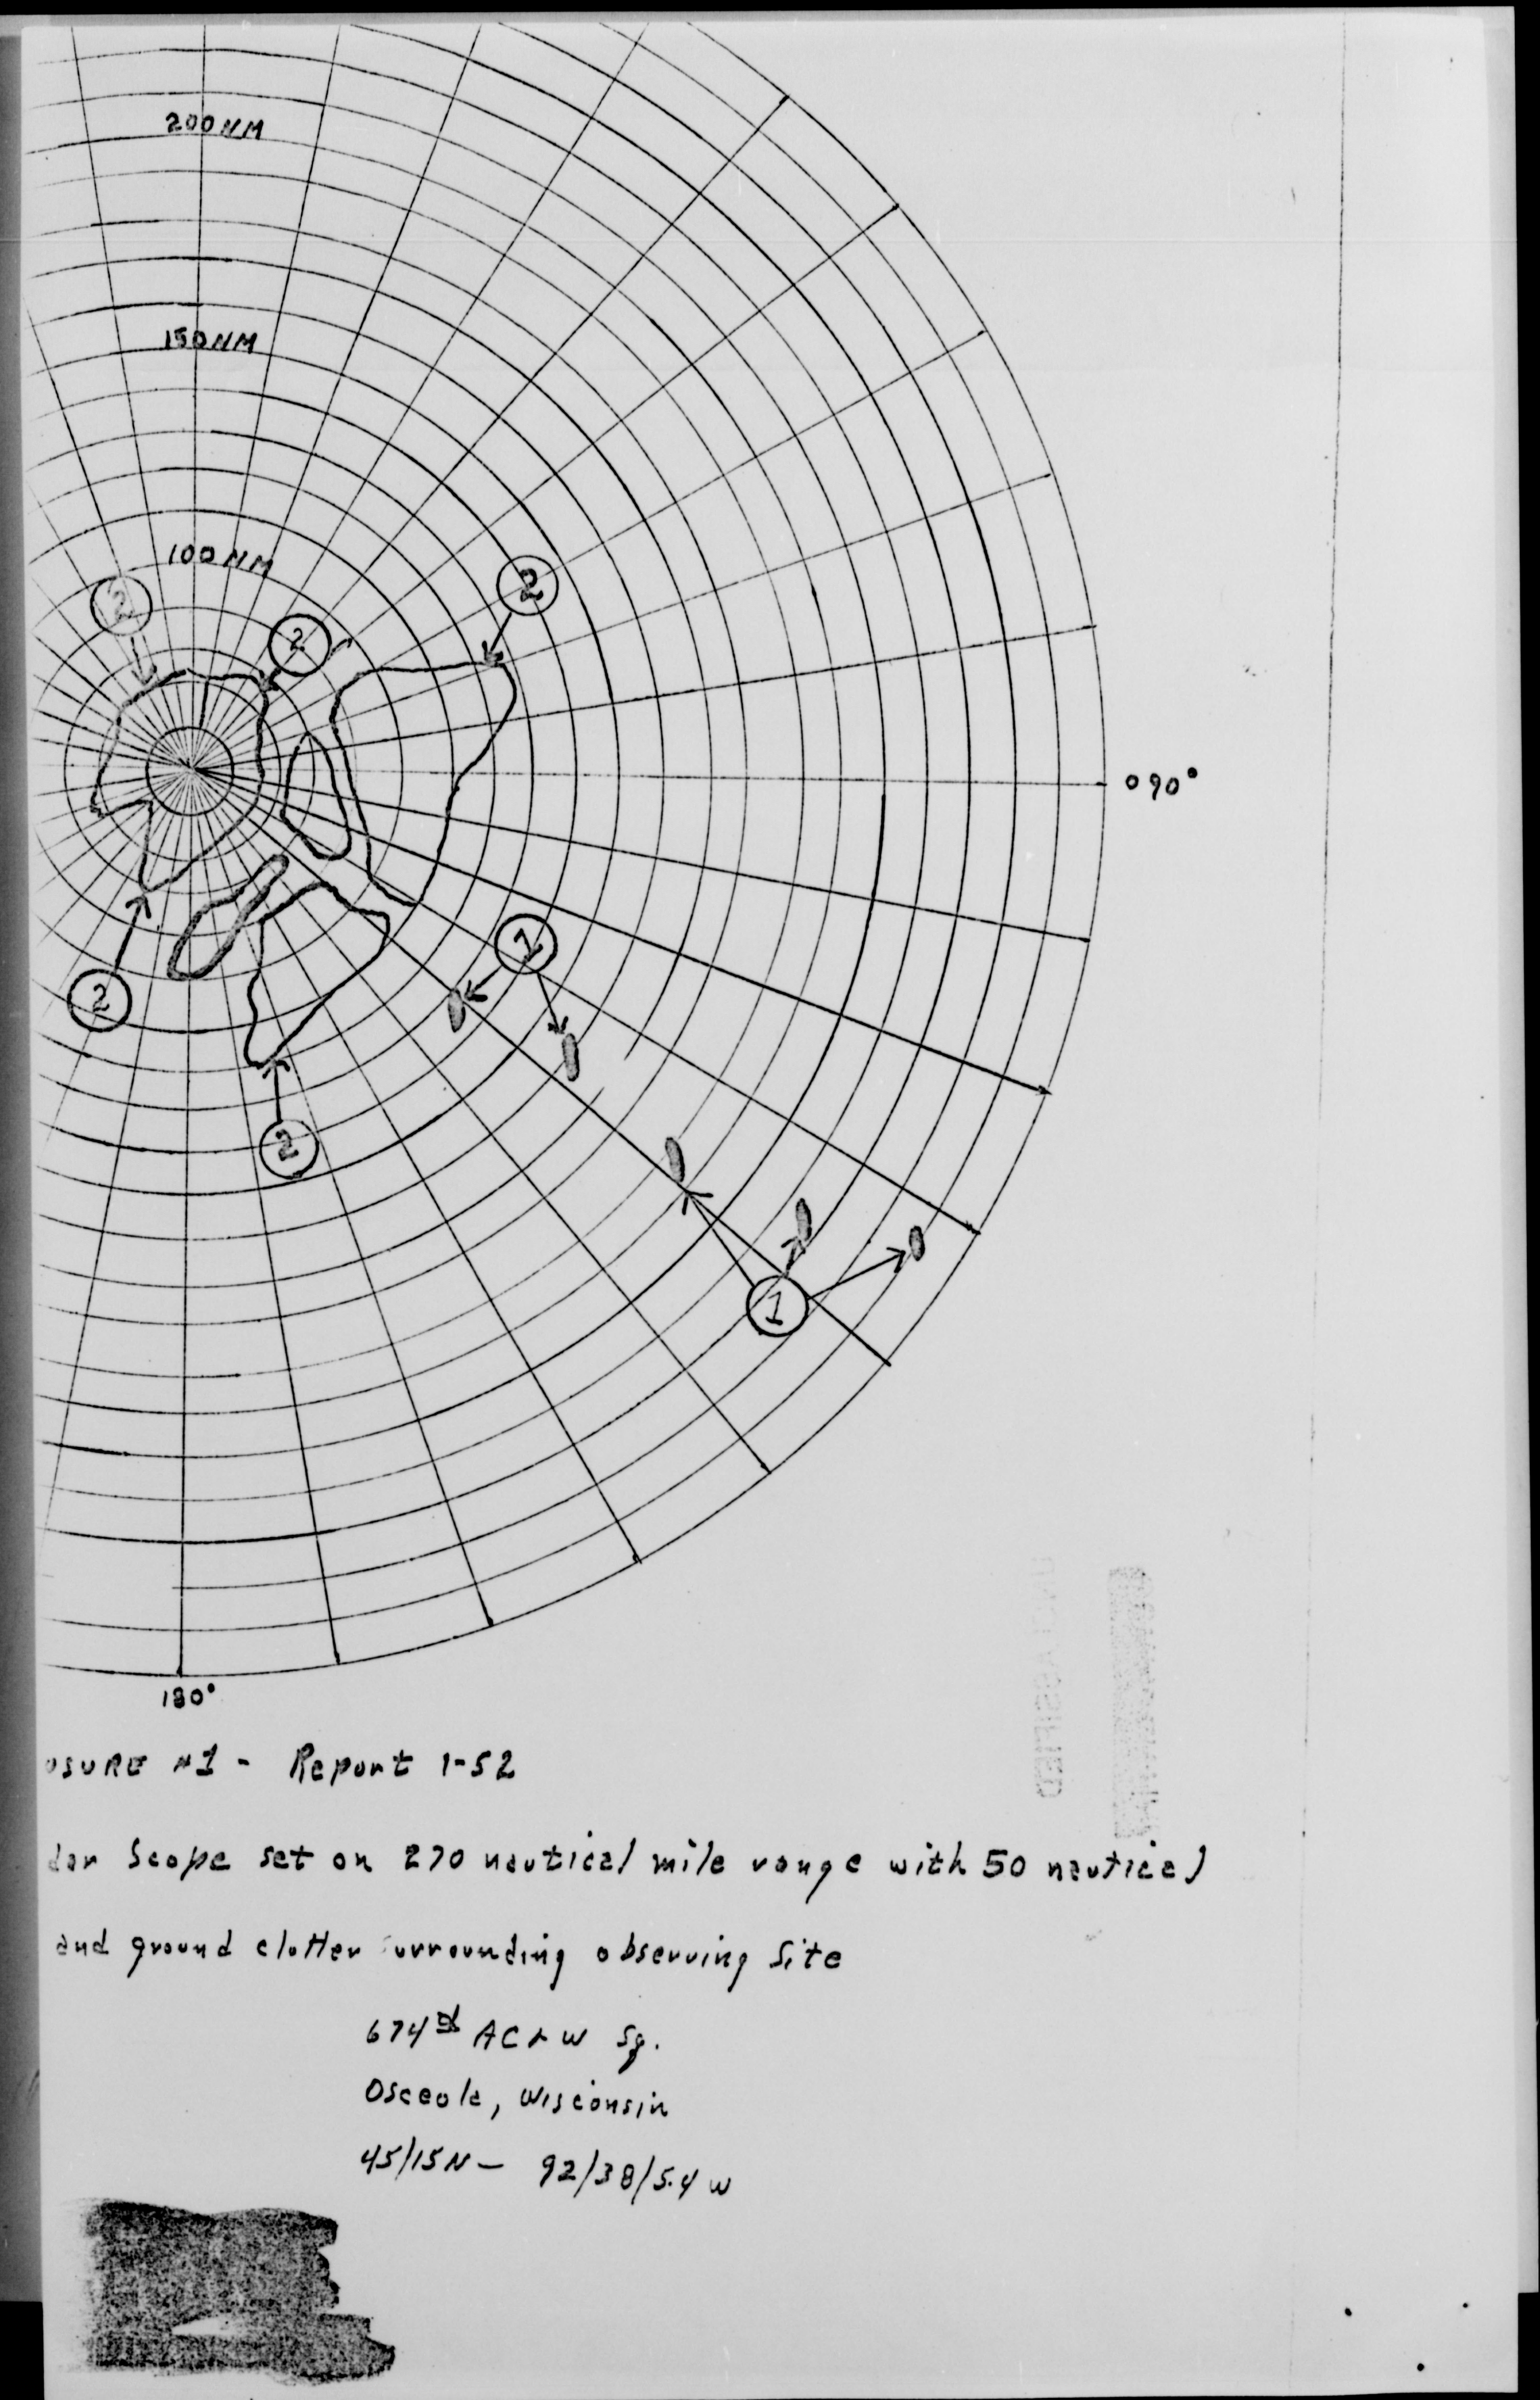 200 NM
150 NM
100 NM
2
2
2
090°
1
2
2
1
180°
OSURE #1 - Report 1-52
dar Scope set on 270 nautical mile range with 50 nautical
and ground clutter surrounding observing Site
674th AC&W Sq.
Osceola, Wisconsin
45/15N - 92/38/5.4 W